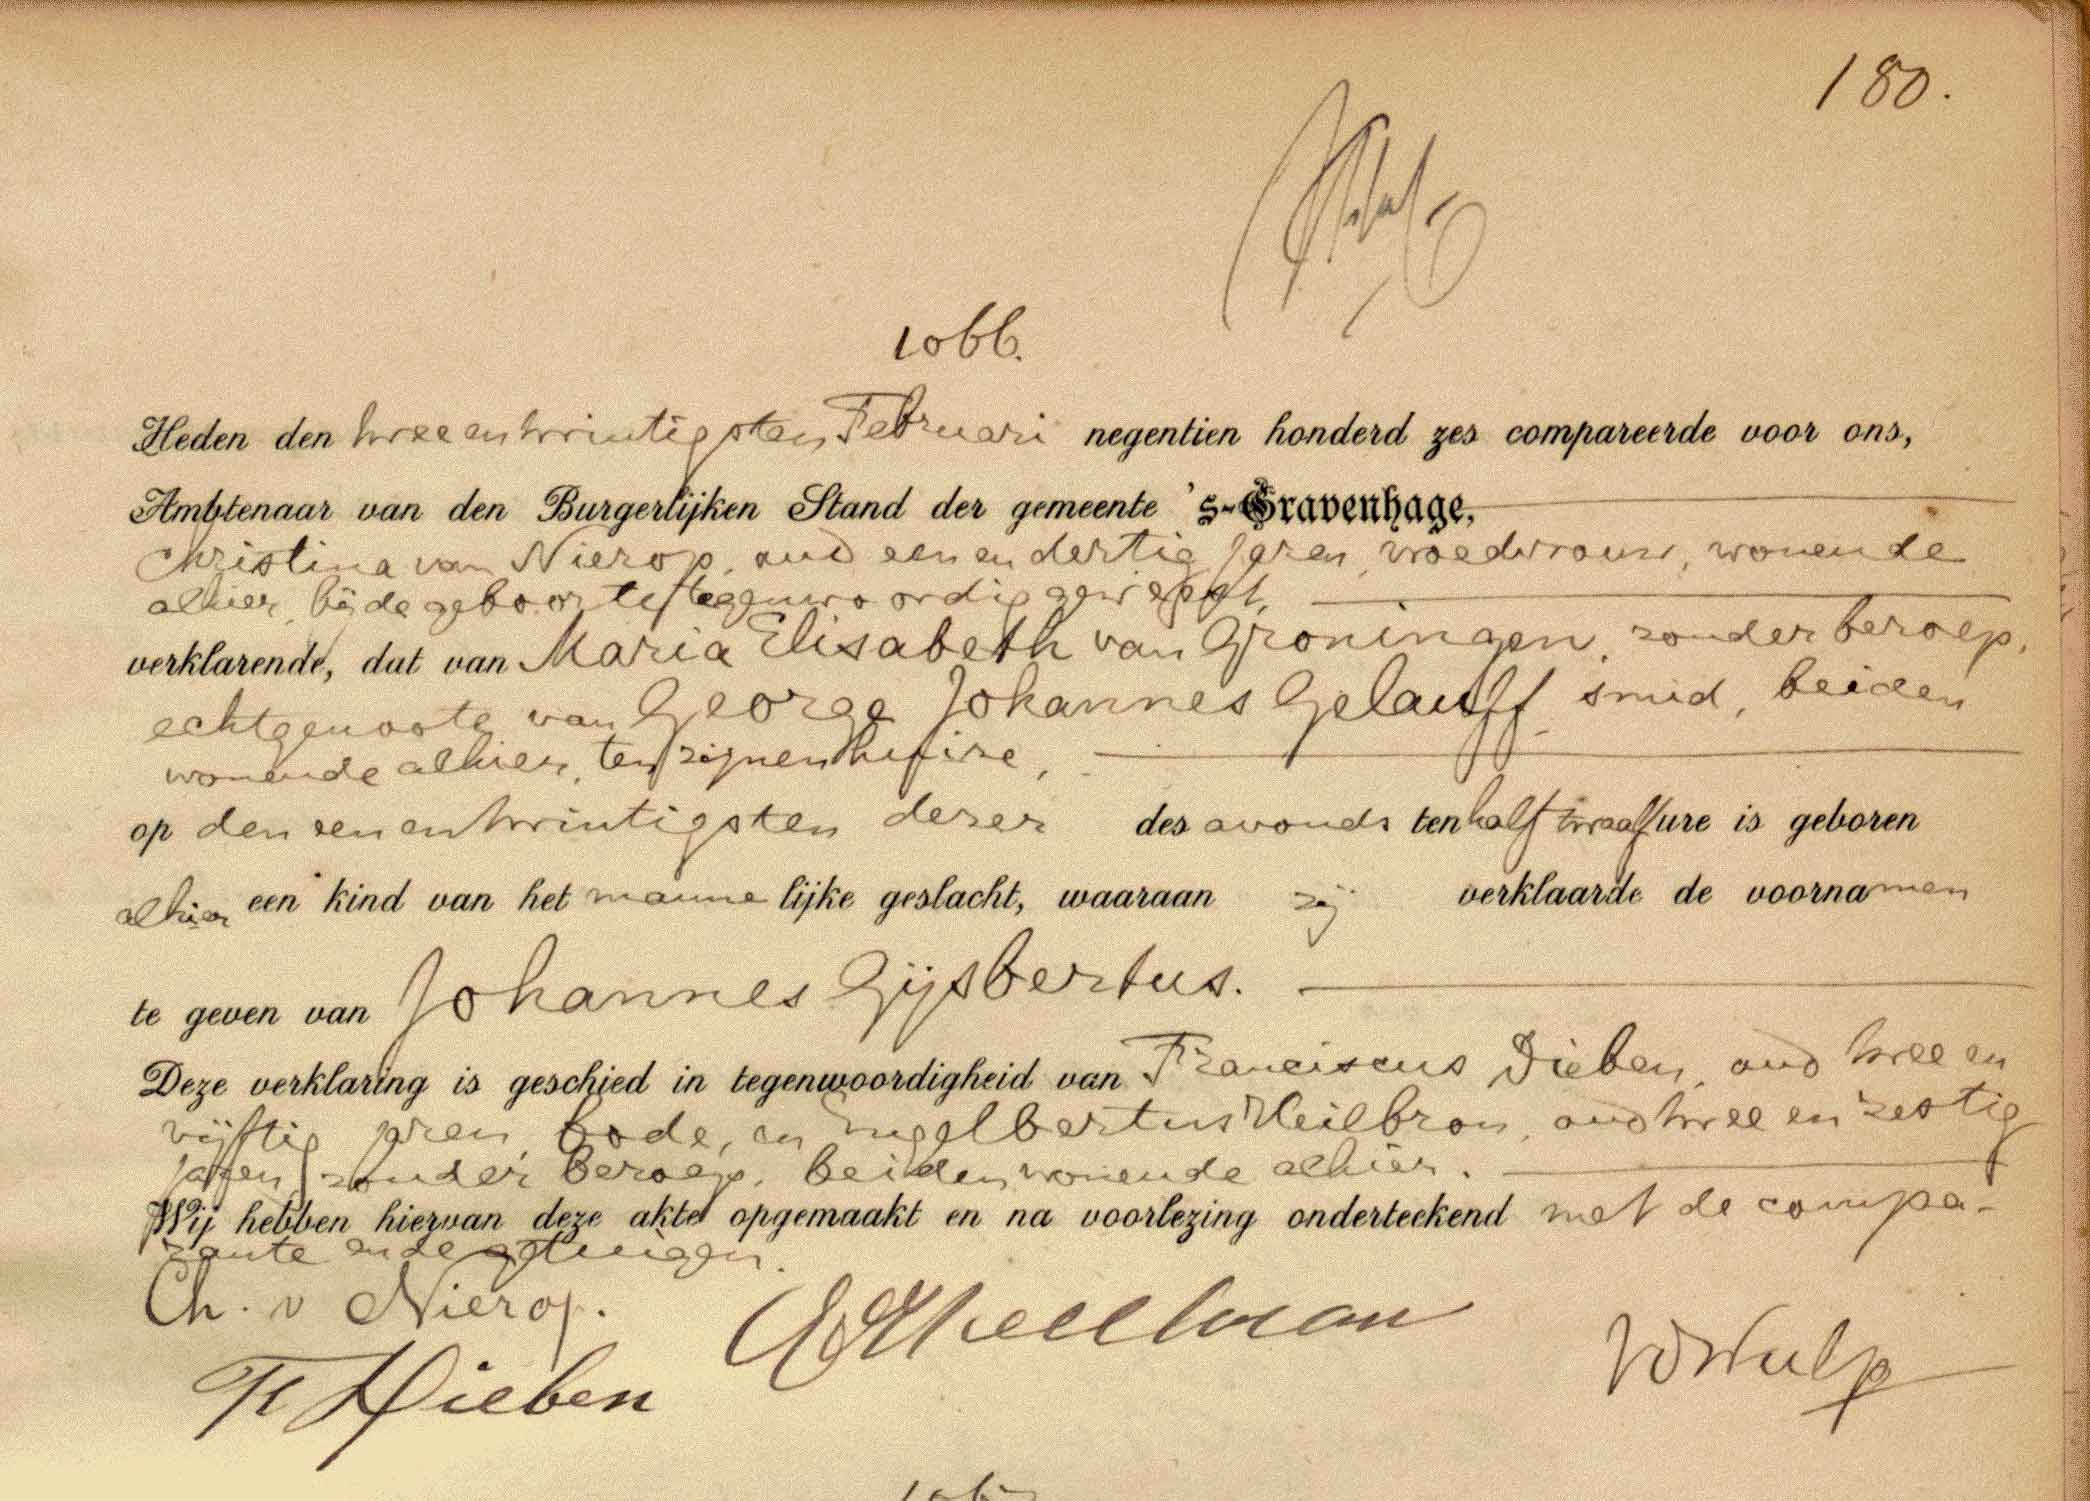 180.
1066.
Heden den twee en twintigsten Februari negentien honderd zes compareerde voor ons,
Ambtenaar van den Burgerlijken Stand der gemeente 's-Gravenhage,
Christina van Nierop, oud een en dertig jaren, vroedvrouw, wonende
alhier, bij de geboorte tegenwoordig geweest,
verklarende, dat van Maria Elisabeth van Groningen, zonder beroep,
echtgenoote van George Johannes Gelauff, smid, beiden
wonende alhier, ten zijnen huize,
op den een en twintigsten dezer des avonds ten half twaalf ure is geboren
alhier een kind van het mannelijke geslacht, waaraan zij verklaarde de voornamen
te geven van Johannes Gijsbertus.
Deze verklaring is geschied in tegenwoordigheid van Franciscus Dieben, oud twee en
vijftig jaren, bode, en Engelbertus Heilbron, oud twee en zestig
jaren, zonder beroep, beiden wonende alhier.
Wij hebben hiervan deze akte opgemaakt en na voorlezing onderteekend met de compa-
rante en de getuigen.
Ch. v Nierop.
Fr Dieben